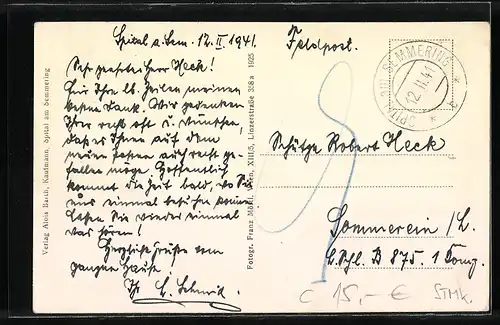 Spital a. Sem. 12. II. 1941.
Sehr geehrter Herr Heck!
Für Ihre lb. Zeilen meinen
besten Dank. Wir gedenken
Ihrer recht oft u. wünschen,
daß es Ihnen auf dem
neuen Posten auch recht ge-
fallen möge. Hoffentlich
kommt die Zeit bald, wo Sie
uns einmal besuchen können.
Lassen Sie wieder einmal
was hören!
Herzliche Grüße vom
ganzen Hause
Ihr
Feldpost.
SPITAL AM SEMMERING
12. II. 41
Schütze Robert Heck
Sommerein/L.
L.Schl. B 875. 1 Komp.
C 15,- € STMK.
Verlag Alois Kaufmann, Spital am Semmering
Fotogr. Franz Wien, XIII/5, Linzerstraße 1925